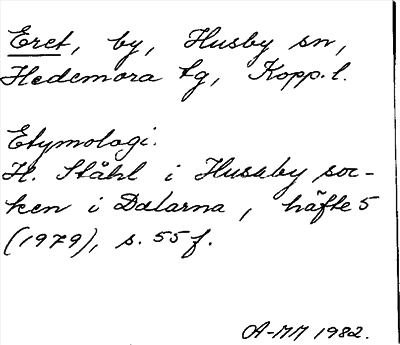 Eret, by, Husby sn,
Hedemora tg, Kopp. l.
Etymologi.
H. Ståhl i Husaby soc-
ken i Dalarna, häfte 5
(1979), s. 55 f.
A-MM 1982.